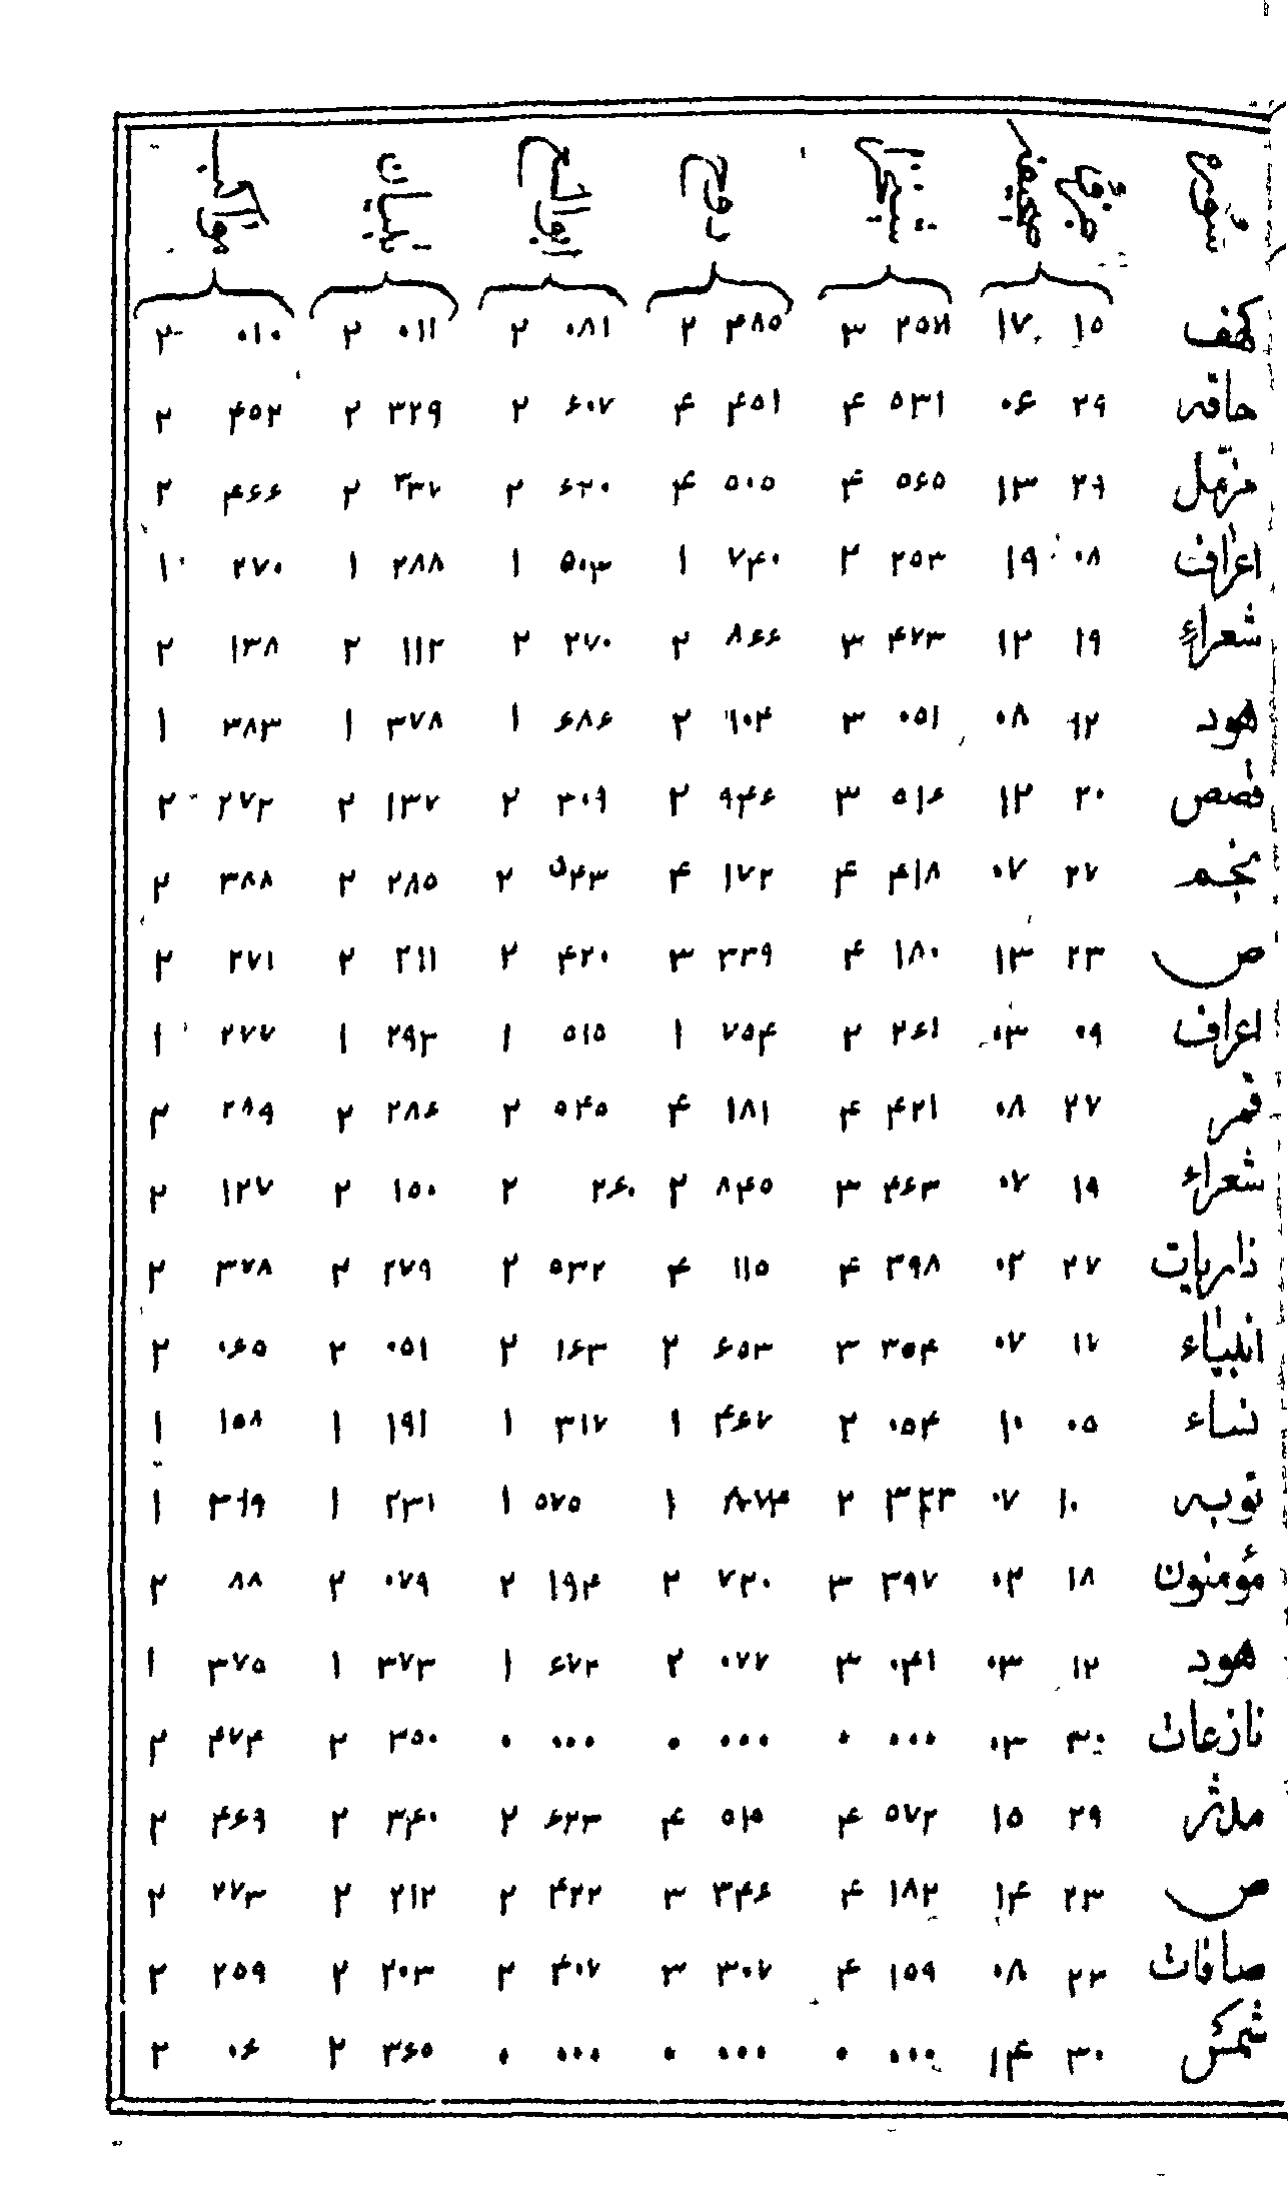 سوره
کهف ۱۵ ۱۷ ۲۵۸ ۳ ۴۸۵ ۲ ۰۸۱ ۲ ۰۱۱ ۲ ۰۱۰ ۲
حاقه ۲۹ ۰۶ ۵۳۱ ۴ ۴۵۱ ۴ ۶۰۷ ۲ ۳۲۹ ۲ ۴۵۲ ۲
مزّمل ۲۹ ۱۳ ۵۶۵ ۴ ۵۰۵ ۴ ۶۲۰ ۲ ۳۳۷ ۲ ۴۶۶ ۲
اعراف ۰۸ ۱۹ ۲۵۳ ۲ ۷۴۰ ۱ ۵۰۳ ۱ ۲۸۸ ۱ ۲۷۰ ۱
شعراء ۱۹ ۱۲ ۴۷۳ ۳ ۸۶۶ ۲ ۲۷۰ ۲ ۱۱۲ ۲ ۱۳۸ ۲
هود ۱۲ ۰۸ ۰۵۱ ۳ ۱۰۴ ۲ ۶۸۶ ۱ ۳۷۸ ۱ ۳۸۳ ۱
قصص ۲۰ ۱۲ ۵۱۶ ۳ ۹۴۶ ۲ ۳۰۹ ۲ ۱۳۷ ۲ ۲۷۲ ۲
نجم ۲۷ ۰۷ ۴۱۸ ۴ ۱۷۲ ۴ ۵۴۳ ۲ ۲۸۵ ۲ ۳۸۸ ۲
ص ۲۳ ۱۳ ۱۸۰ ۴ ۳۳۹ ۳ ۴۲۰ ۲ ۲۱۱ ۲ ۲۷۱ ۲
اعراف ۰۹ ۰۳ ۲۶۱ ۲ ۷۵۴ ۱ ۵۱۵ ۱ ۲۹۳ ۱ ۲۷۷ ۱
قمر ۲۷ ۰۸ ۴۲۱ ۴ ۱۸۱ ۴ ۵۴۵ ۲ ۲۸۶ ۲ ۲۸۹ ۲
شعراء ۱۹ ۰۷ ۴۶۳ ۳ ۸۴۵ ۲ ۲۶۰ ۲ ۱۵۰ ۲ ۱۲۷ ۲
ذاریات ۲۷ ۰۲ ۳۹۸ ۴ ۱۱۵ ۴ ۵۳۲ ۲ ۲۷۹ ۲ ۳۷۸ ۲
انبیاء ۱۷ ۰۷ ۳۵۴ ۳ ۶۵۳ ۲ ۱۶۳ ۲ ۰۵۱ ۲ ۰۶۵ ۲
نساء ۰۵ ۱۰ ۰۵۴ ۲ ۴۶۷ ۱ ۳۱۷ ۱ ۱۹۱ ۱ ۱۵۸ ۱
توبه ۱۰ ۰۷ ۳۲۳ ۲ ۸۷۴ ۱ ۵۷۵ ۱ ۲۳۱ ۱ ۳۱۹ ۱
مؤمنون ۱۸ ۰۲ ۳۹۷ ۳ ۷۲۰ ۲ ۱۹۴ ۲ ۰۷۹ ۲ ۸۸ ۲
هود ۱۲ ۰۳ ۰۴۱ ۳ ۰۷۷ ۲ ۶۷۲ ۱ ۳۷۳ ۱ ۳۷۵ ۱
نازعات ۳۰ ۰۳ ۰۰۰ ۰ ۰۰۰ ۰ ۰۰۰ ۰ ۳۵۰ ۲ ۴۷۴ ۲
مدثر ۲۹ ۱۵ ۵۷۲ ۴ ۵۱۵ ۴ ۶۲۳ ۲ ۳۴۰ ۲ ۴۶۹ ۲
ص ۲۳ ۱۴ ۱۸۲ ۴ ۳۴۶ ۳ ۴۲۲ ۲ ۲۱۲ ۲ ۲۷۳ ۲
صافات ۲۳ ۰۸ ۱۵۹ ۴ ۳۰۷ ۳ ۴۰۷ ۲ ۲۰۳ ۲ ۲۵۹ ۲
شمس ۳۰ ۱۴ ۰۰۰ ۰ ۰۰۰ ۰ ۰۰۰ ۰ ۳۶۵ ۲ ۰۶ ۲